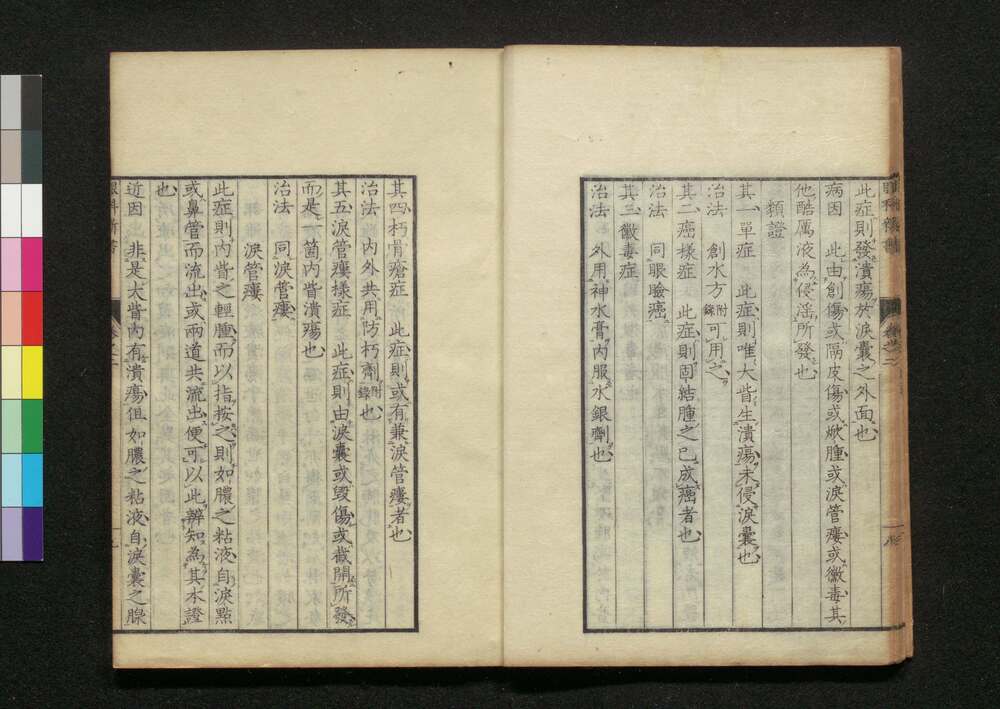 此症則發潰瘍於淚囊之外面也
病因　此由創傷或隔皮傷或焮腫或淚管瘻或黴毒其
他酷厲液為侵淫所發也
類證
其一單症　此症則唯大眥生潰瘍未侵淚囊也
治法　創水方附錄可用之
其二癌樣症　此症則固結腫之已成癌者也
治法　同眼瞼癌
其三黴毒症
治法　外用神水膏內服水銀劑也
其四朽骨瘡症　此症則或有兼淚管瘻者也
治法　內外共用防朽劑附錄也
其五淚管瘻樣症　此症則由淚囊或毀傷或截開所發
而是亦一箇內眥潰瘍也
治法　同淚管瘻
淚管瘻
此症則內眥之輕腫而以指按之則如膿之粘液自淚點
或鼻管而流出或兩道共流出便可以此辨知為其本證
也
近因　非是大眥內有潰瘍但如膿之粘液自淚囊之腺